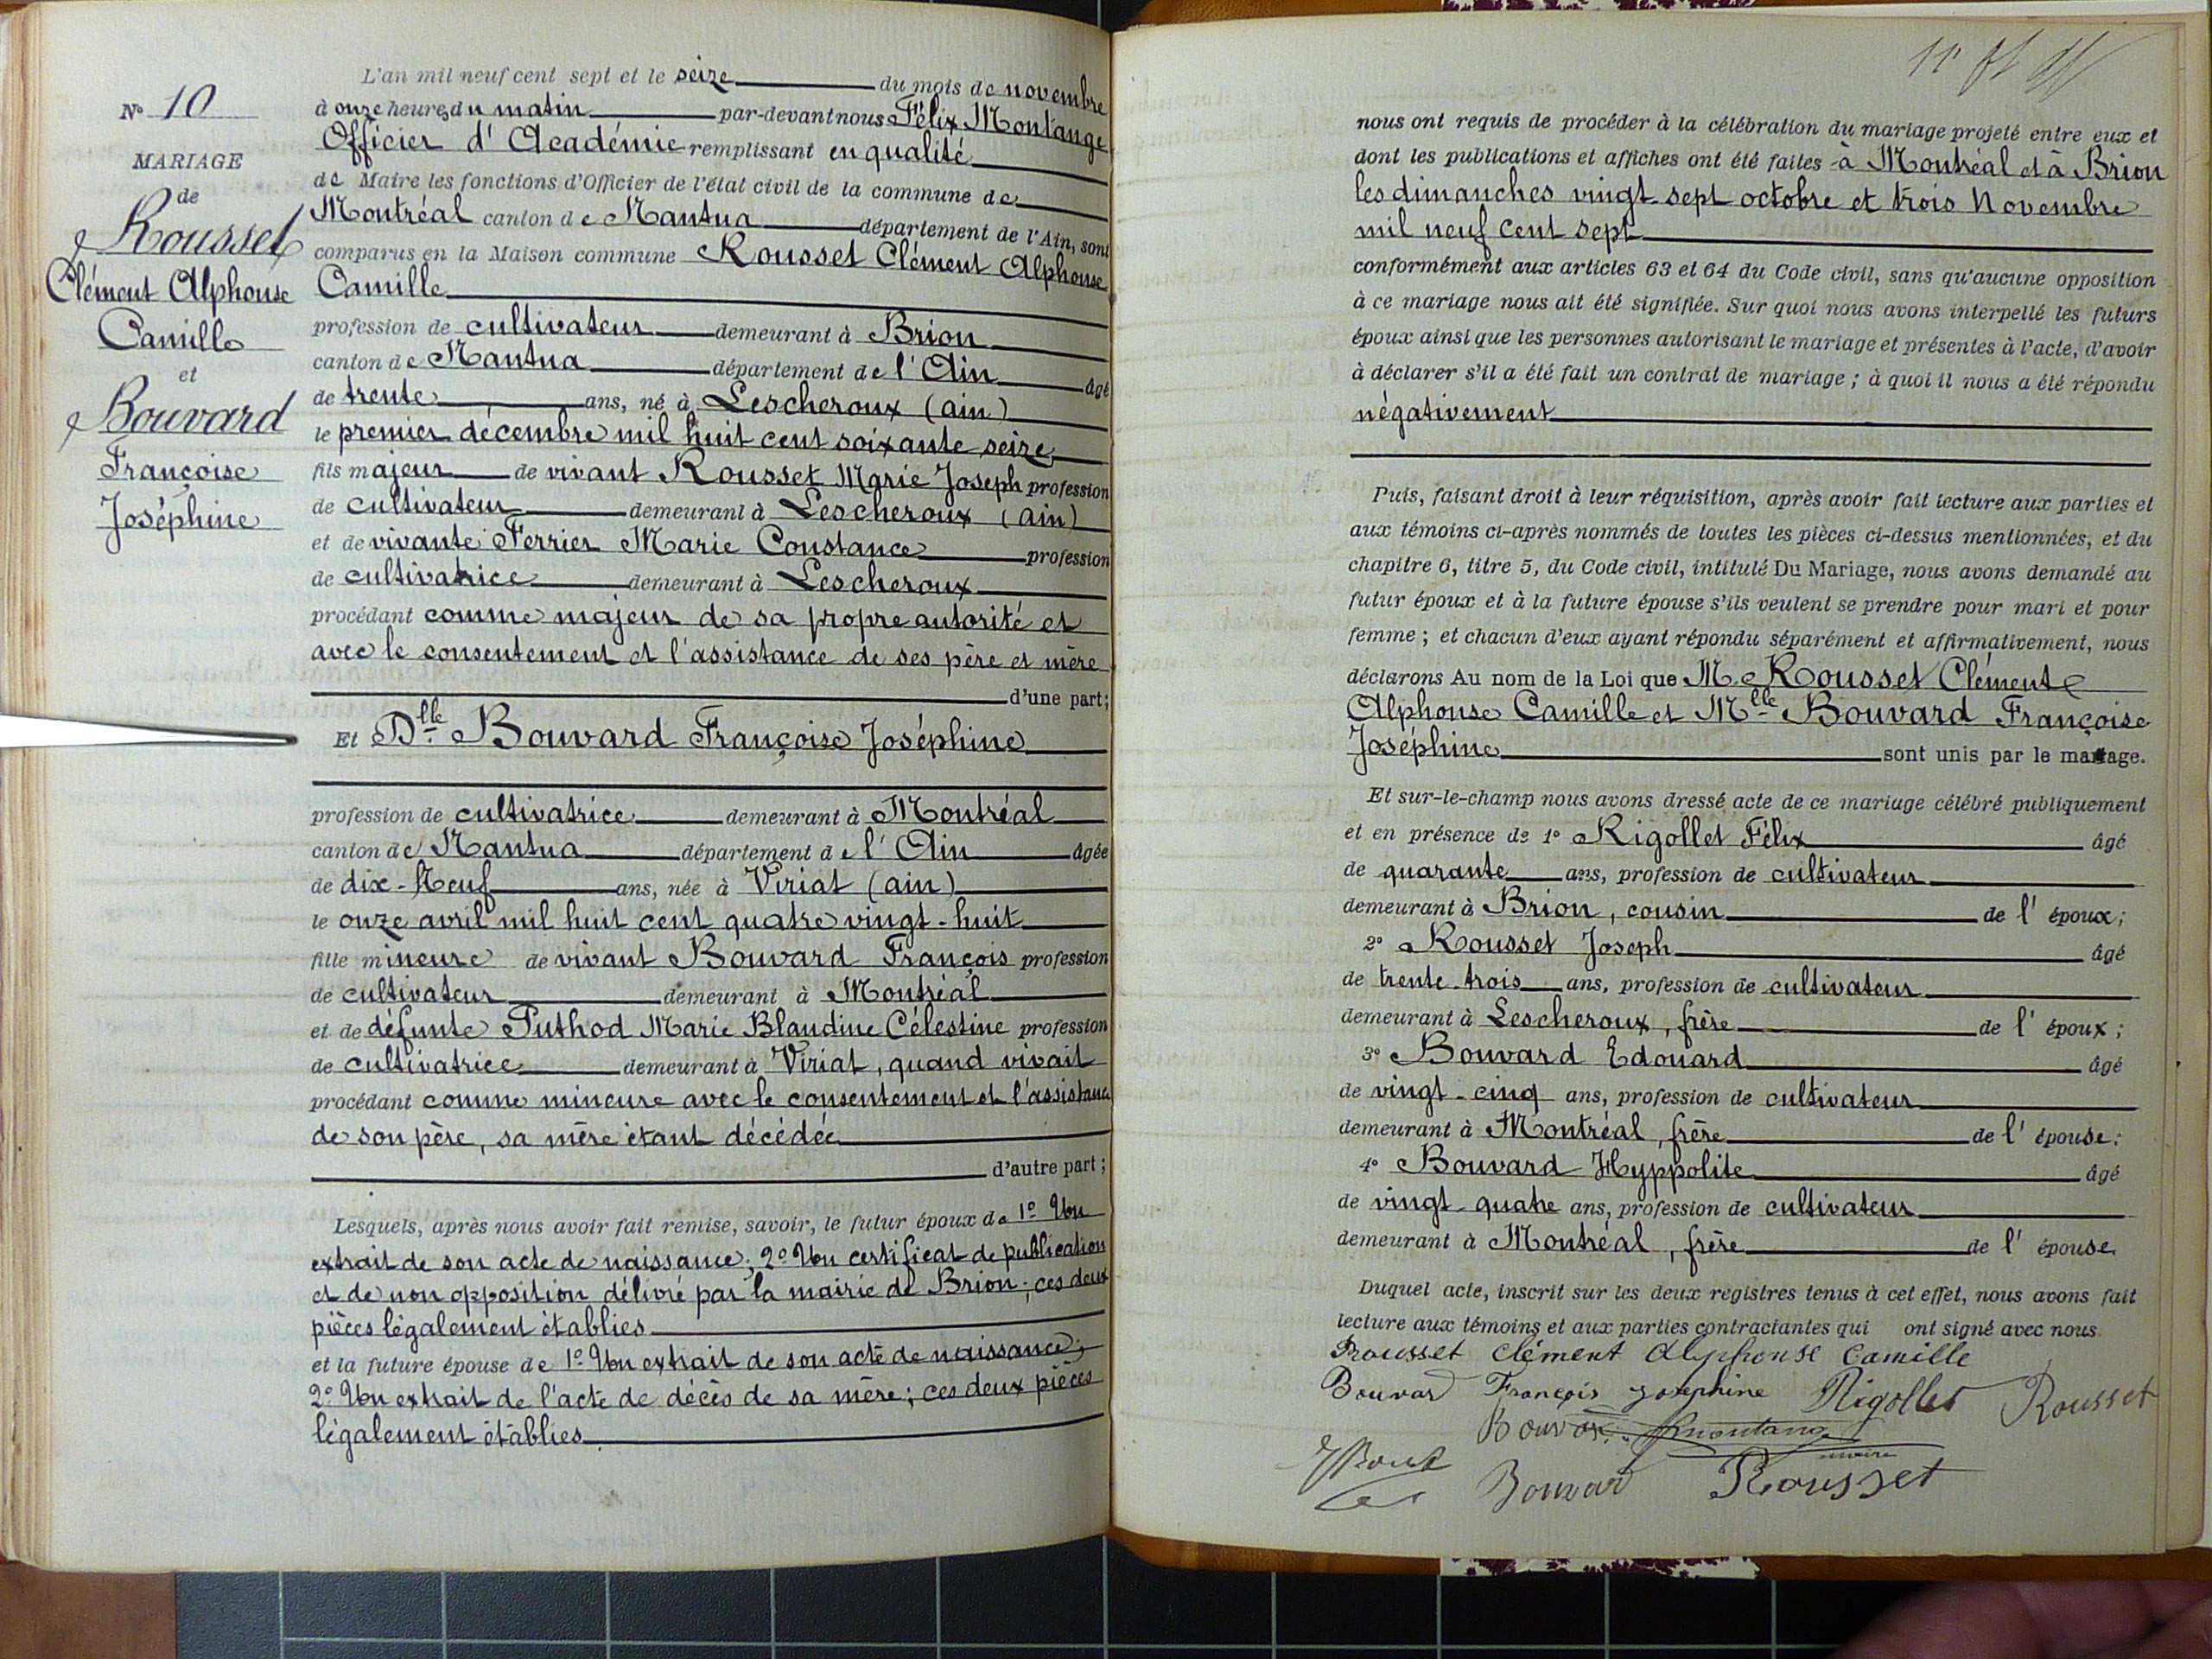 N° 10
MARIAGE
de
Rousset
Clément Alphonse
Camille
et
Bouvard
Françoise
Joséphine
L'an mil neuf cent sept et le seize du mois de novembre
à onze heures du matin par-devant nous Félix Montange
Officier d'Académie remplissant en qualité
de Maire les fonctions d'Officier de l'état civil de la commune de
Montréal canton de Nantua département de l'Ain, sont
comparus en la Maison commune Rousset Clément Alphonse
Camille
profession de cultivateur demeurant à Brion
canton de Nantua département de l'Ain âgé
de trente ans, né à Lescheroux (ain)
le premier décembre mil huit cent soixante seize
fils majeur de vivant Rousset Marie Joseph profession
de cultivateur demeurant à Lescheroux (ain)
et de vivante Ferrier Marie Constance profession
de cultivatrice demeurant à Lescheroux
procédant comme majeur de sa propre autorité et
avec le consentement et l'assistance de ses père et mère
d'une part;
Et Dlle Bouvard Françoise Joséphine
profession de cultivatrice demeurant à Montréal
canton de Nantua département de l'Ain âgée
de dix-Neuf ans, née à Viriat (ain)
le onze avril mil huit cent quatre vingt-huit
fille mineure de vivant Bouvard François profession
de cultivateur demeurant à Montréal
et de défunte Puthod Marie Blandine Célestine profession
de cultivatrice demeurant à Viriat, quand vivait
procédant comme mineure avec le consentement et l'assistance
de son père, sa mère étant décédée
d'autre part;
Lesquels, après nous avoir fait remise, savoir, le futur époux de 1° Un
extrait de son acte de naissance; 2° Un certificat de publication
et de non opposition délivré par la mairie de Brion; ces deux
pièces légalement établies
et la future épouse de 1° Un extrait de son acte de naissance;
2° Un extrait de l'acte de décès de sa mère; ces deux pièces
légalement établies
nous ont requis de procéder à la célébration du mariage projeté entre eux et
dont les publications et affiches ont été faites à Montréal et à Brion
les dimanches vingt sept octobre et trois Novembre
mil neuf cent sept
conformément aux articles 63 et 64 du Code civil, sans qu'aucune opposition
à ce mariage nous ait été signifiée. Sur quoi nous avons interpellé les futurs
époux ainsi que les personnes autorisant le mariage et présentes à l'acte, d'avoir
à déclarer s'il a été fait un contrat de mariage; à quoi il nous a été répondu
négativement
Puis, faisant droit à leur réquisition, après avoir fait lecture aux parties et
aux témoins ci-après nommés de toutes les pièces ci-dessus mentionnées, et du
chapitre 6, titre 5, du Code civil, intitulé Du Mariage, nous avons demandé au
futur époux et à la future épouse s'ils veulent se prendre pour mari et pour
femme; et chacun d'eux ayant répondu séparément et affirmativement, nous
déclarons Au nom de la Loi que M. Rousset Clément
Alphonse Camille et Mlle Bouvard Françoise
Joséphine sont unis par le mariage.
Et sur-le-champ nous avons dressé acte de ce mariage célébré publiquement
et en présence de 1° Rigollet Félix âgé
de quarante ans, profession de cultivateur
demeurant à Brion, cousin de l'époux;
2° Rousset Joseph âgé
de trente-trois ans, profession de cultivateur
demeurant à Lescheroux, frère de l'époux;
3° Bouvard Edouard âgé
de vingt-cinq ans, profession de cultivateur
demeurant à Montréal, frère de l'épouse;
4° Bouvard Hyppolite âgé
de vingt-quatre ans, profession de cultivateur
demeurant à Montréal, frère de l'épouse
Duquel acte, inscrit sur les deux registres tenus à cet effet, nous avons fait
lecture aux témoins et aux parties contractantes qui ont signé avec nous.
Rousset clément alphonse Camille
Bouvar François josephine Rigollet Rousset
Bouvar
maire
Bouvar Rousset